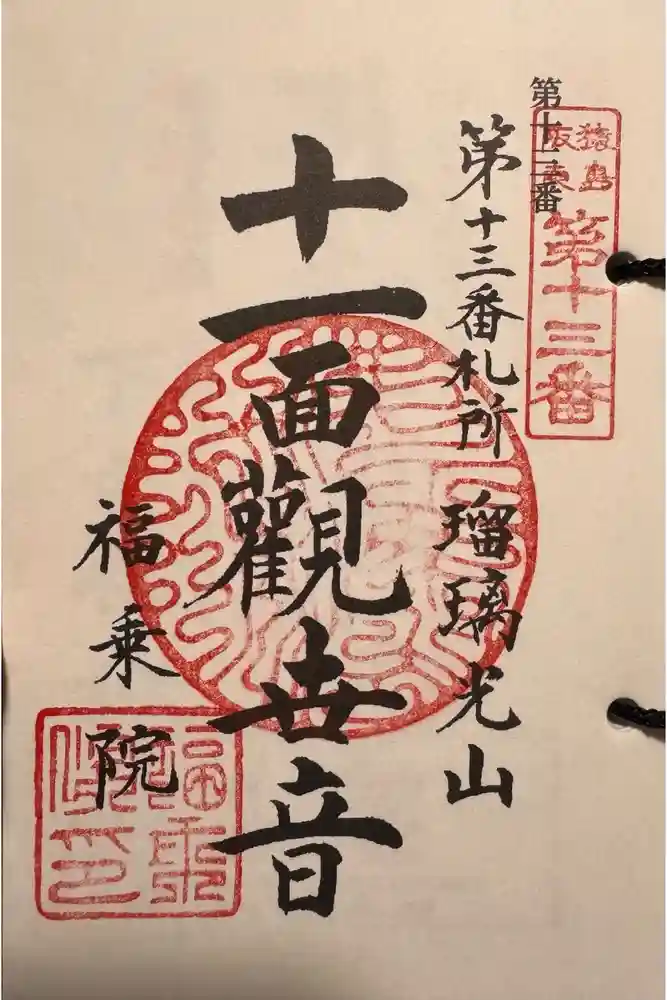 猿島
阪東
第十三番
第十二番
第十三番札所 瑠璃光山
十一面觀世音
福乗院
福乗
院印